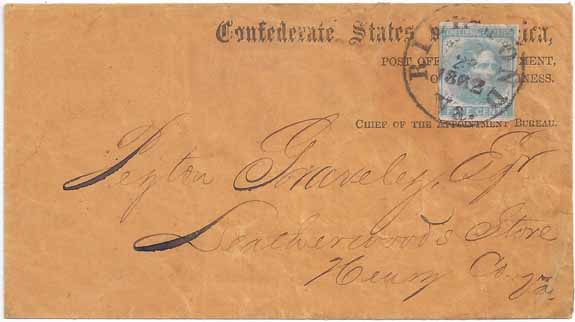 Confederate States of America,
POST OFFICE DEPARTMENT,
OFFICIAL BUSINESS.
CHIEF OF THE APPOINTMENT BUREAU.
RICHMOND
1862
Va.
FIVE CENTS
Peyton Graveley, Esqr
Leatherwood's Store
Henry Co. Va.